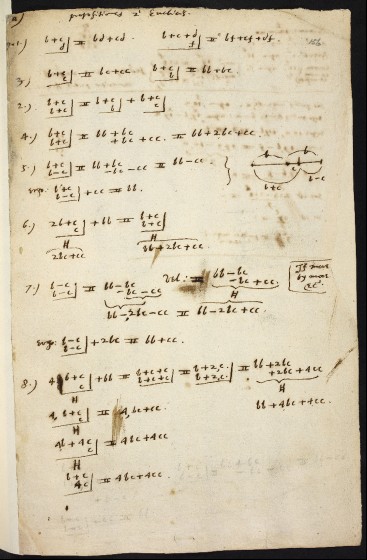 propositions 2 Euclides.
1.) b+c | d = bd+cd. b+c+d | f = bf+cf+df
3.) b+c | c = bc+cc. b+c | b = bb+bc
2.) b+c | b+c = b+c | b + b+c | c
4.) b+c | b+c = bb+bc +bc+cc = bb+2bc+cc.
5.) b+c | b-c = bb+bc -bc-cc = bb-cc.
b b c b-c b+c
ergo. b+c | b-c +cc = bb.
6.) 2b+c | c +bb = b+c | b+c
2bc+cc bb+2bc+cc.
7.) b-c | b-c = bb-bc -bc+cc Vel: = bb-bc -bc+cc.
bb-2bc+cc = bb-2bc+cc.
ergo b-c | b-c +2bc = bb+cc.
8.) 4, b+c | c +bb = b+c+c | b+c+c = b+2,c. | b+2,c. = bb+2bc +2bc+4cc
bb+4bc+4cc.
4, b+c | c = 4,bc+cc.
4b+4c | c = 4bc+4cc
b+c | 4c = 4bc+4cc.